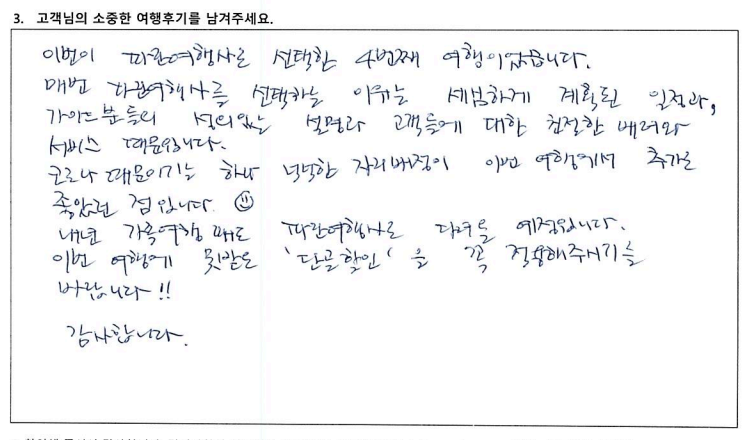 3. 고객님의 소중한 여행후기를 남겨주세요.
이번이 파란여행사로 선택한 4번째 여행이었습니다.
매번 파란여행사를 선택하는 이유는 세심하게 계획된 일정과,
가이드분들의 성의있는 설명과 고객들에 대한 친절한 배려와
서비스 때문입니다.
코로나 때문이기는 하나 넉넉한 자리배정이 이번 여행에서 추가로
좋았던 점입니다. ☺
내년 가족여행 때도 파란여행사로 다녀올 예정입니다.
이번 여행에 못받은 '단골할인'을 꼭 적용해주시기를
바랍니다!!
감사합니다.